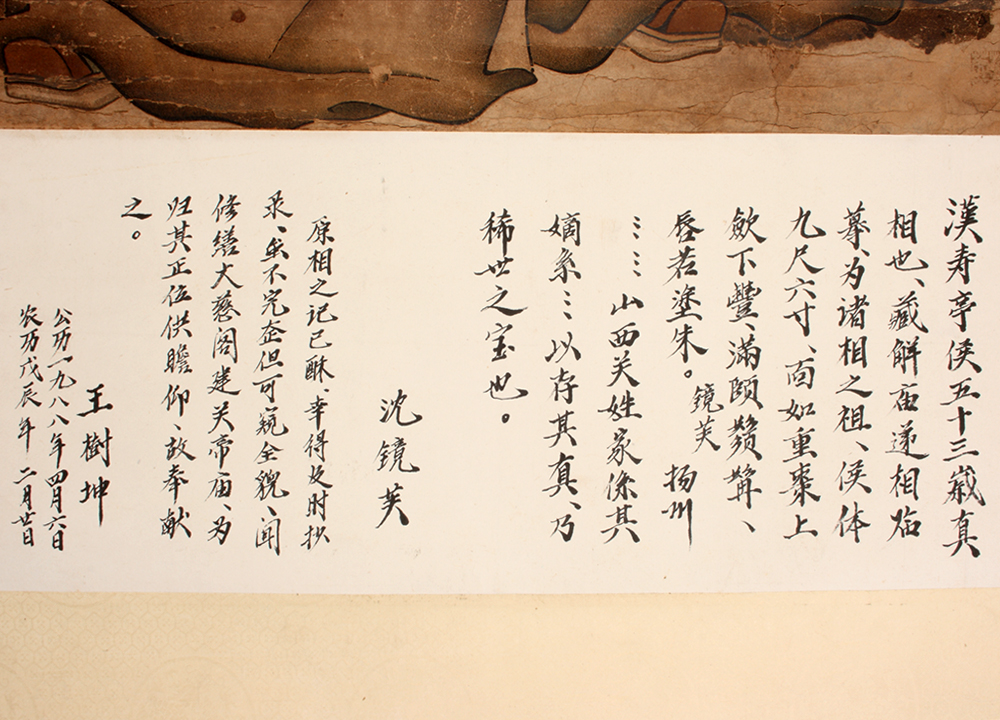 漢寿亭侯五十三嵗真
相也、藏解庙遂相临
摹、为诸相之祖、侯体
九尺六寸、面如重棗上
歛下豐、滿頤鬚髯、
唇若塗朱。 鏡芙 扬州
⋮⋮ 山西关姓家係其
嫡系⋮以存其真、乃
稀世之宝也。
沈镜芙
原相之记已酥、幸得及时抄
录、虽不完全但可窥全貌、闻
修缮大慈阁建关帝庙、为
归其正位供瞻仰、故奉献
之。
王樹坤
公历一九八八年四月六日
农历戊辰年 二月廿日